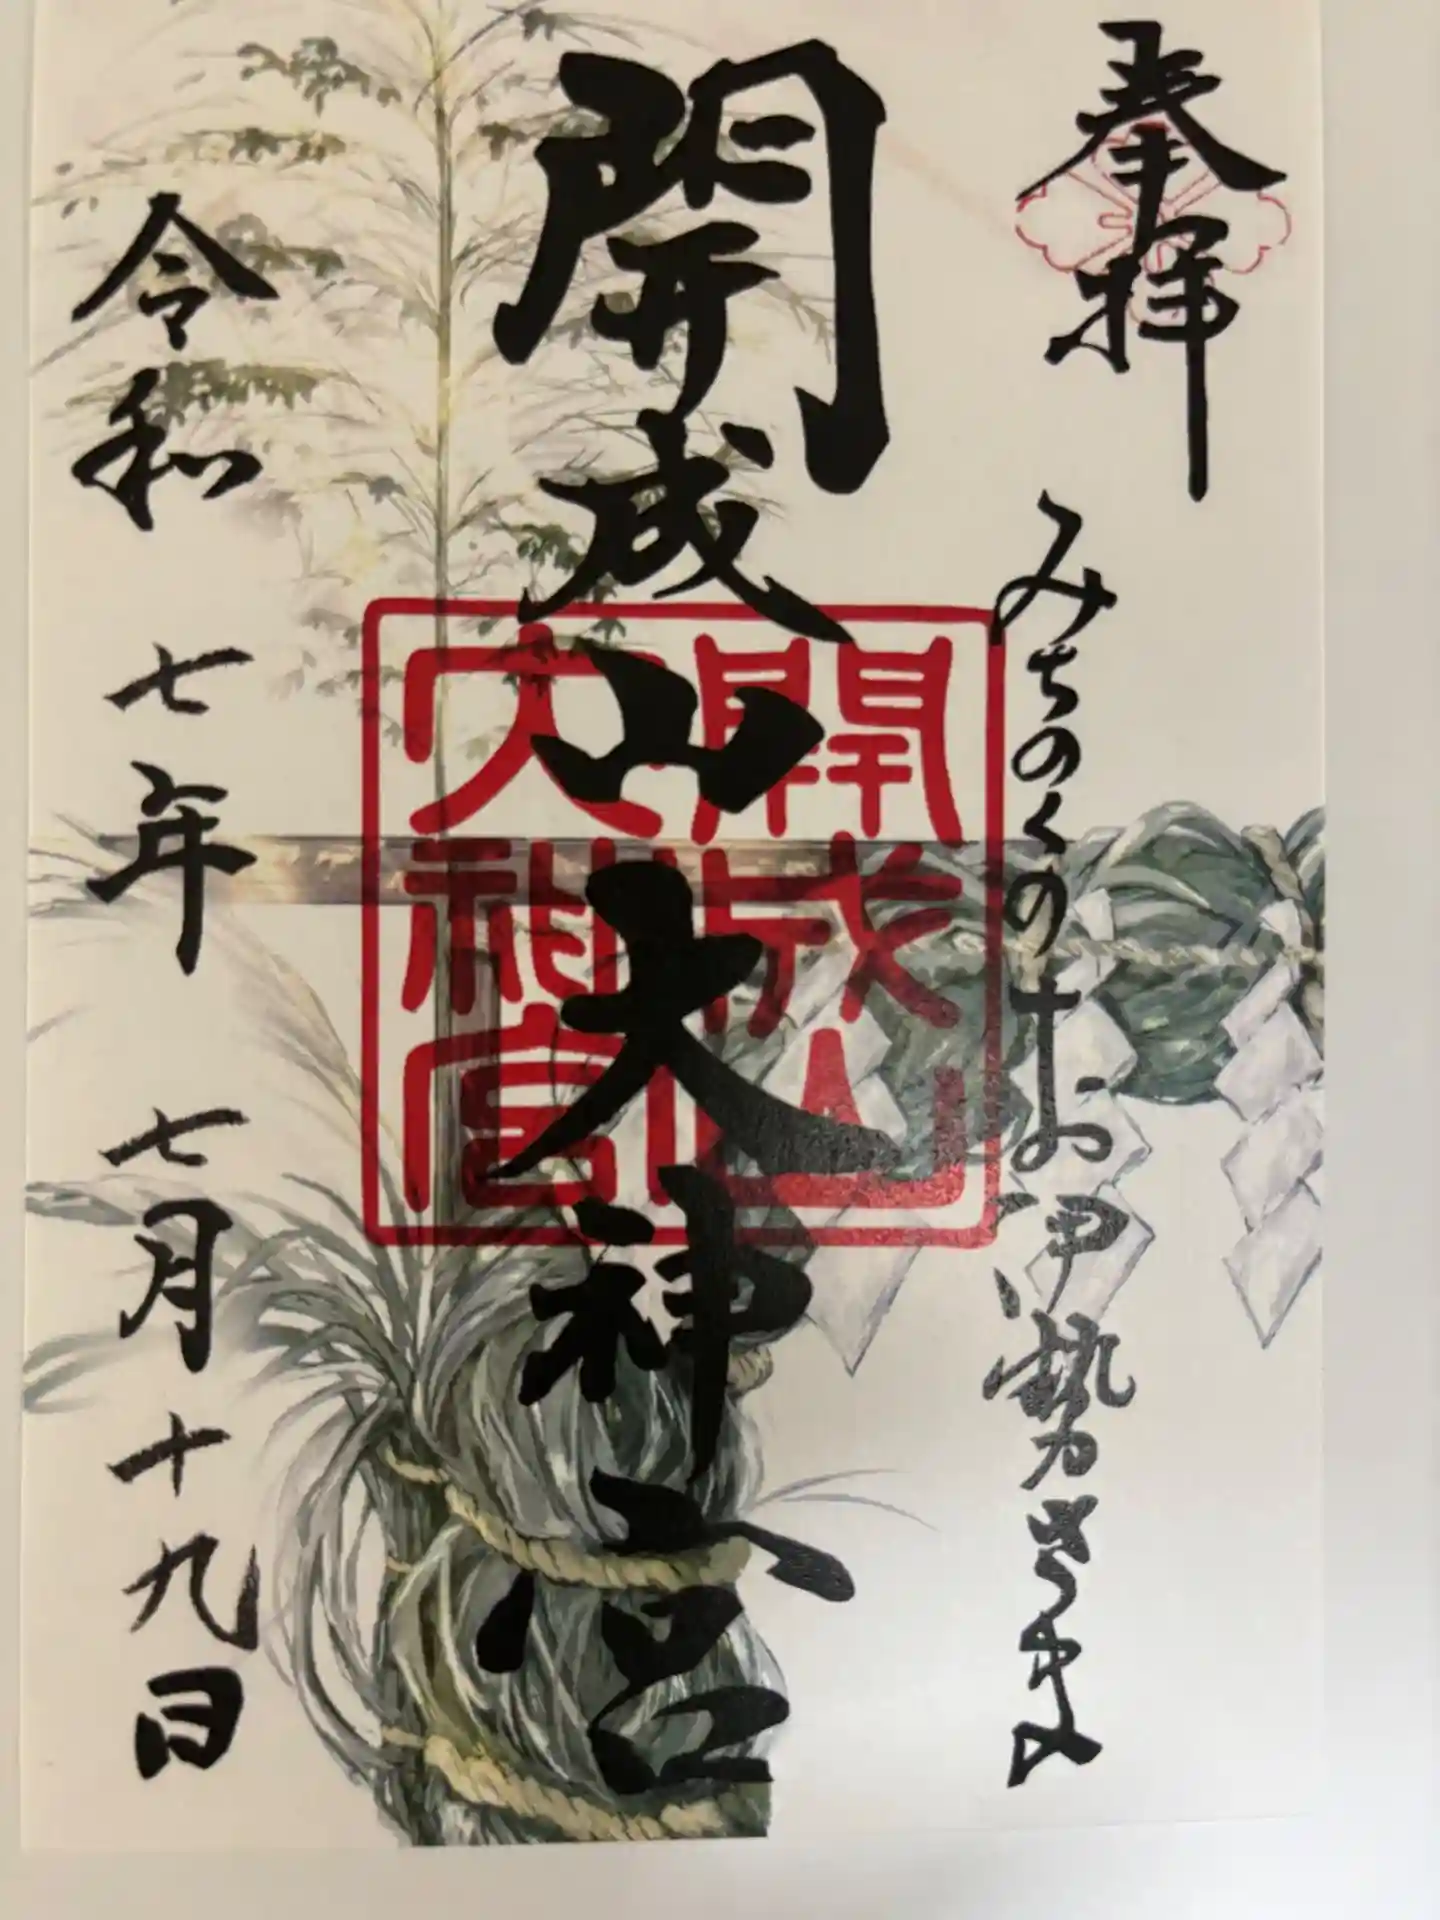 奉拝
みちのくのお伊勢さま
開成山大神宮
開成山
大神宮
令和七年七月十九日